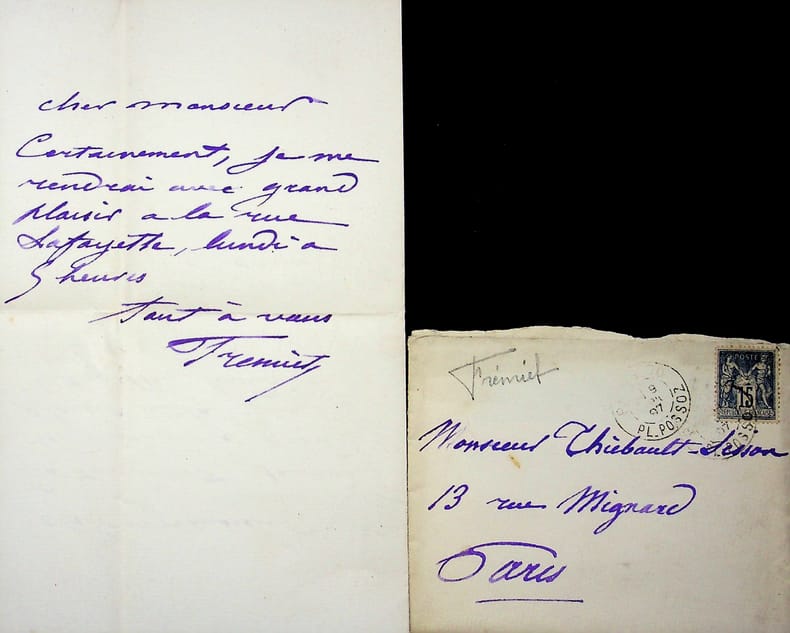 cher monsieur
Certainement, je me
rendrai avec grand
plaisir a la rue
Lafayette, lundi a
5 heures
tout à vous
Fremiet
Frémiet
PL. POSSOZ
97
POSTE
15
RÉPUBLIQUE FRANÇAISE
Monsieur Thiébault-Sisson
13 rue Mignard
Paris